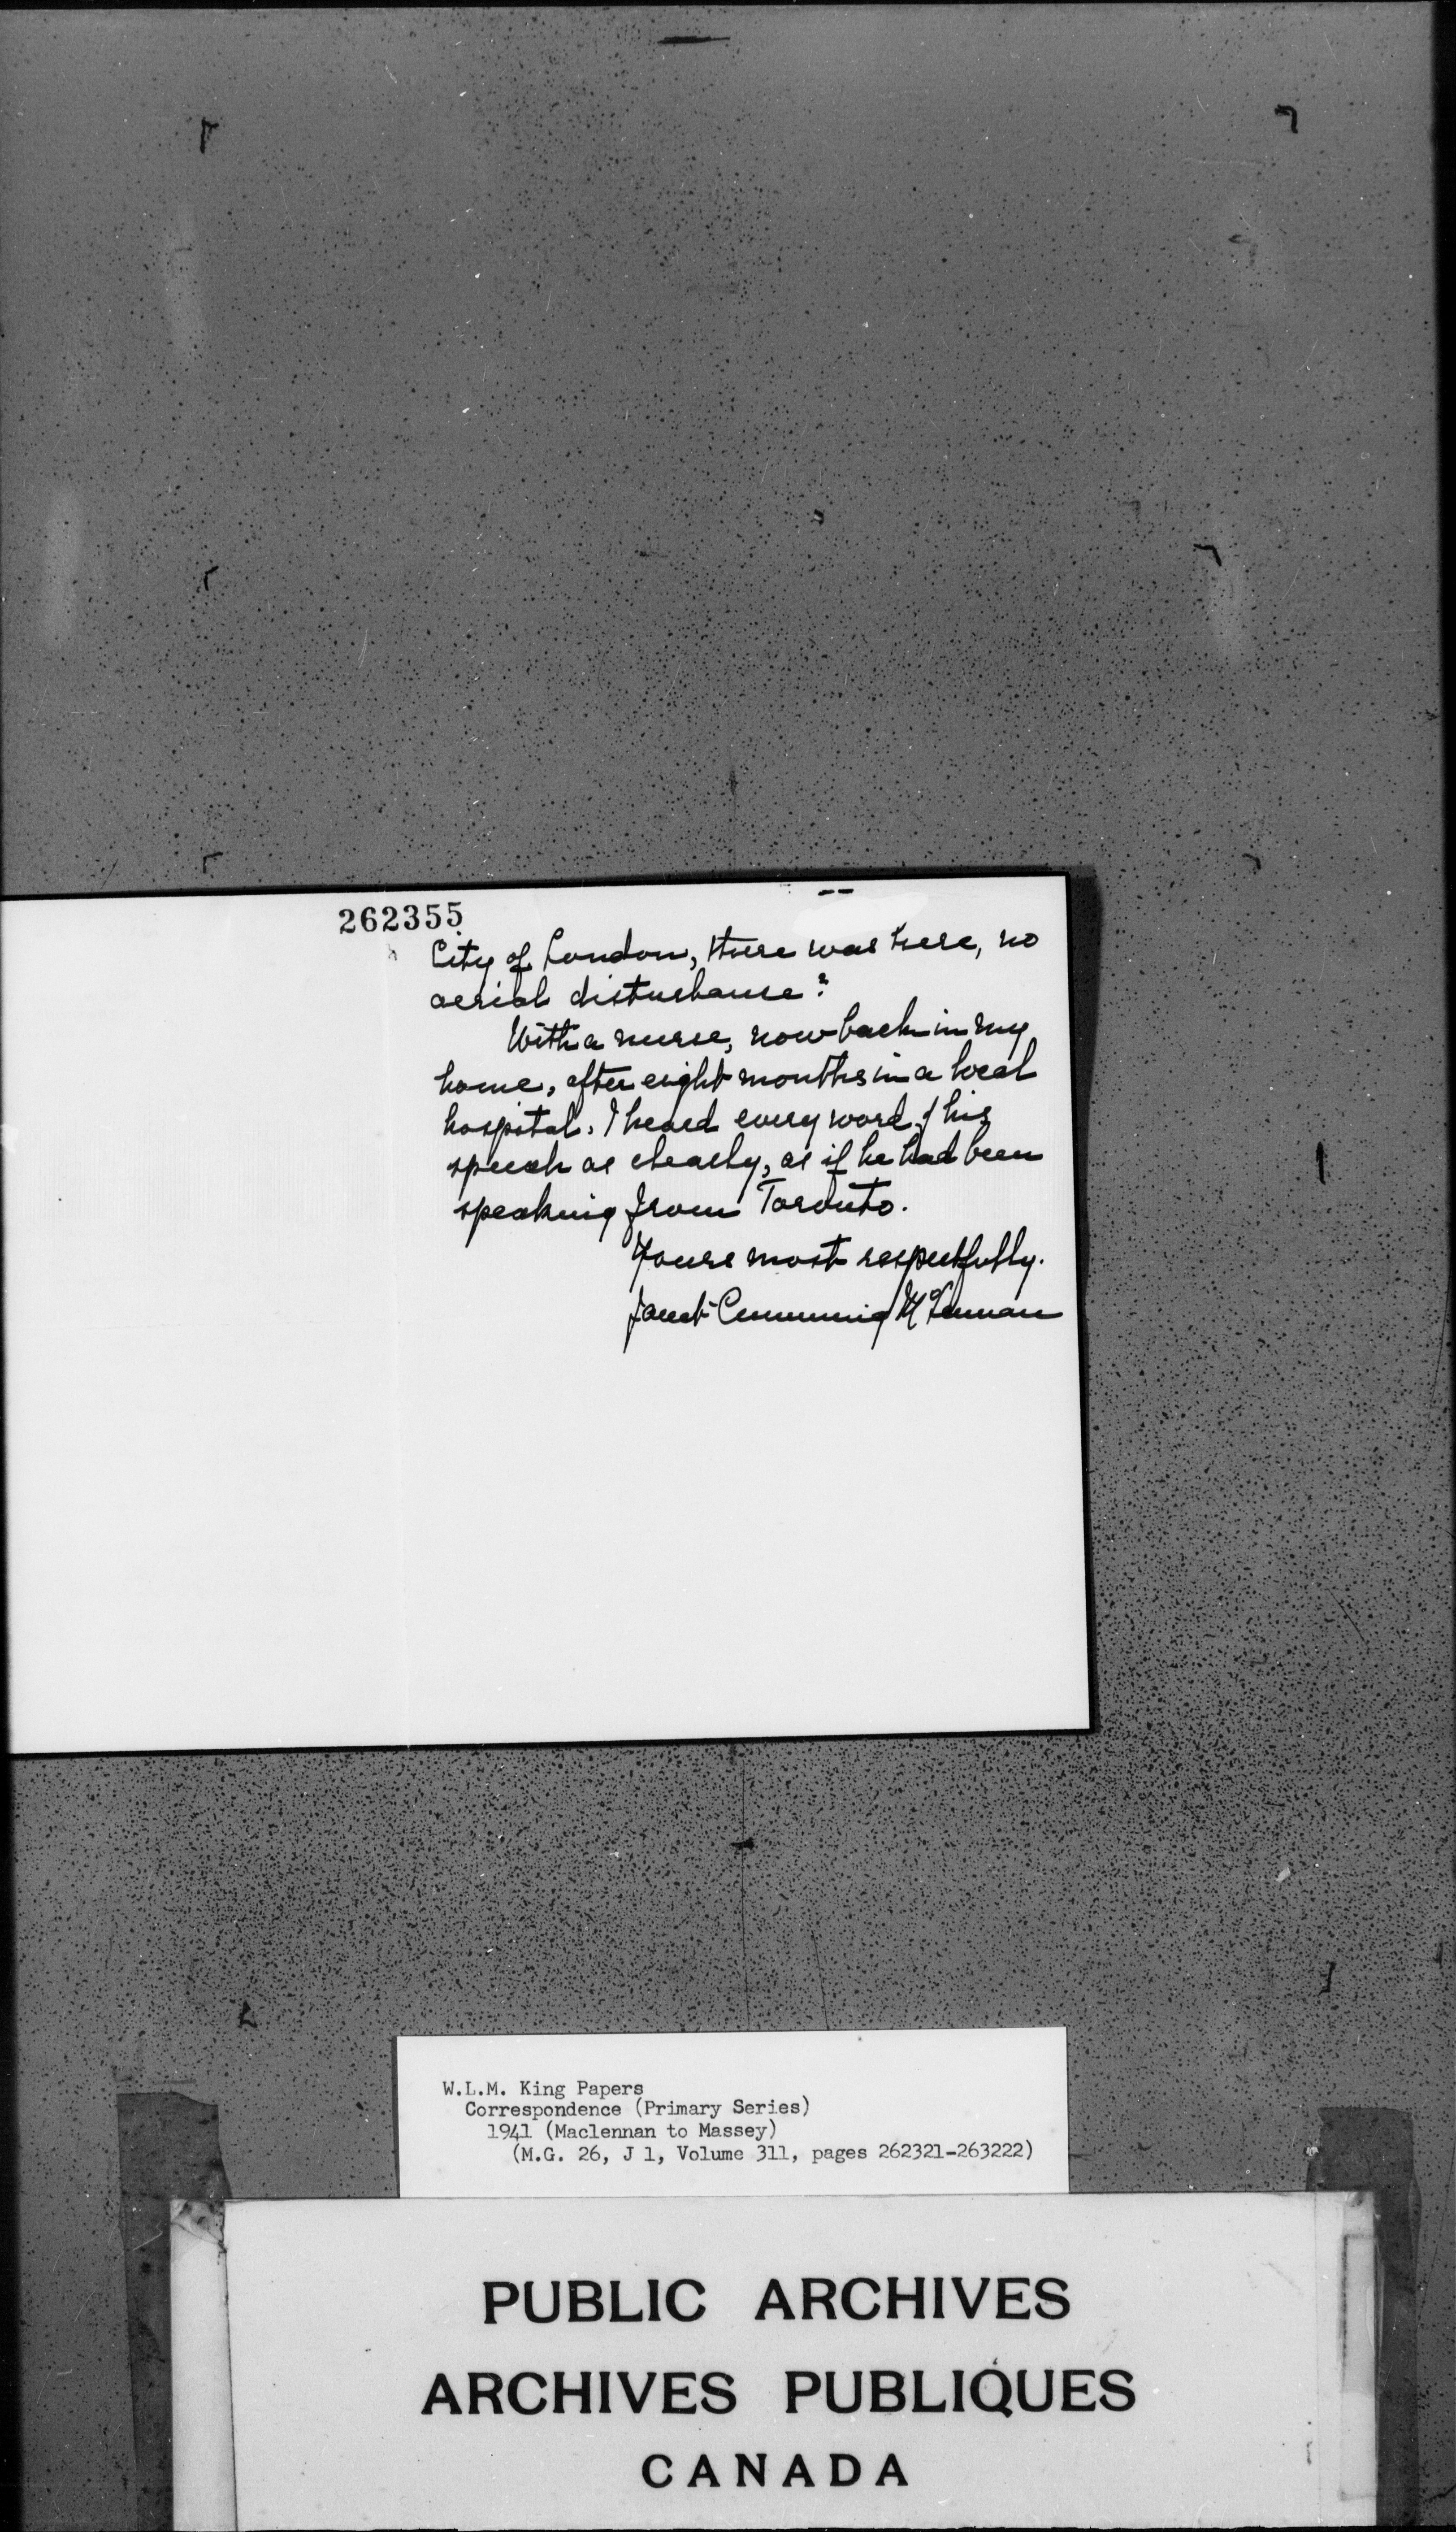 262355
City of London, there was here, no
aerial disturbance?
With a nurse, now back in my
home, after eight months in a local
hospital. I heard every word of his
speech as clearly, as if he had been
speaking from Toronto.
Yours most respectfully.
Janet Cumming McLennan
W.L.M. King Papers
Correspondence (Primary Series)
1941 (Maclennan to Massey)
(M.G. 26, J 1, Volume 311, pages 262321-263222)
PUBLIC ARCHIVES
ARCHIVES PUBLIQUES
CANADA